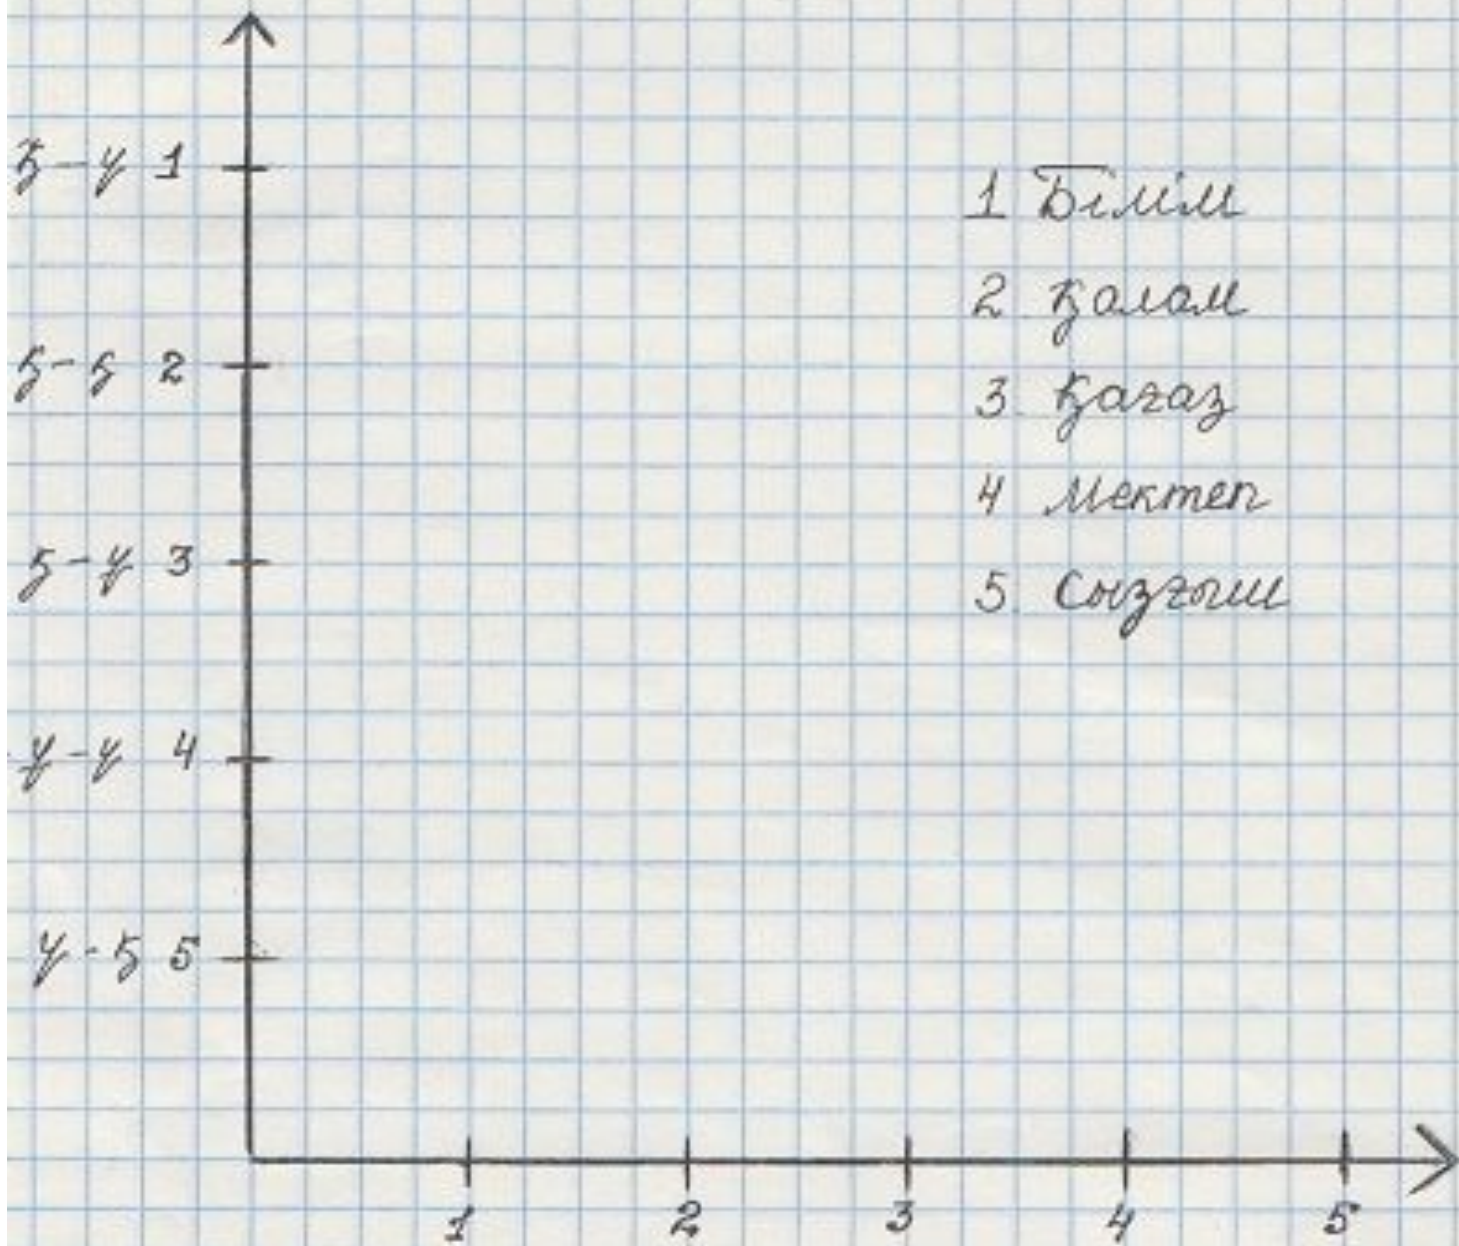 қ-ұ 1
қ-қ 2
қ-ұ 3
ұ-ұ 4
ұ-қ 5
1 Білім
2. Қалам
3. Қағаз
4 Мектеп
5. Сызғыш
1 2 3 4 5